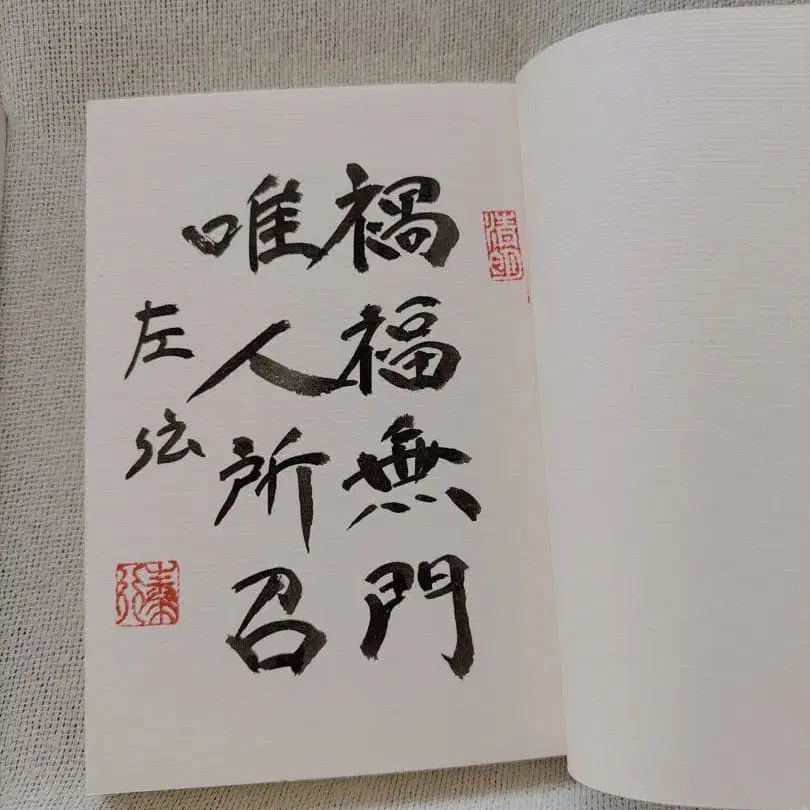 禍福無門
唯人所召
左弦